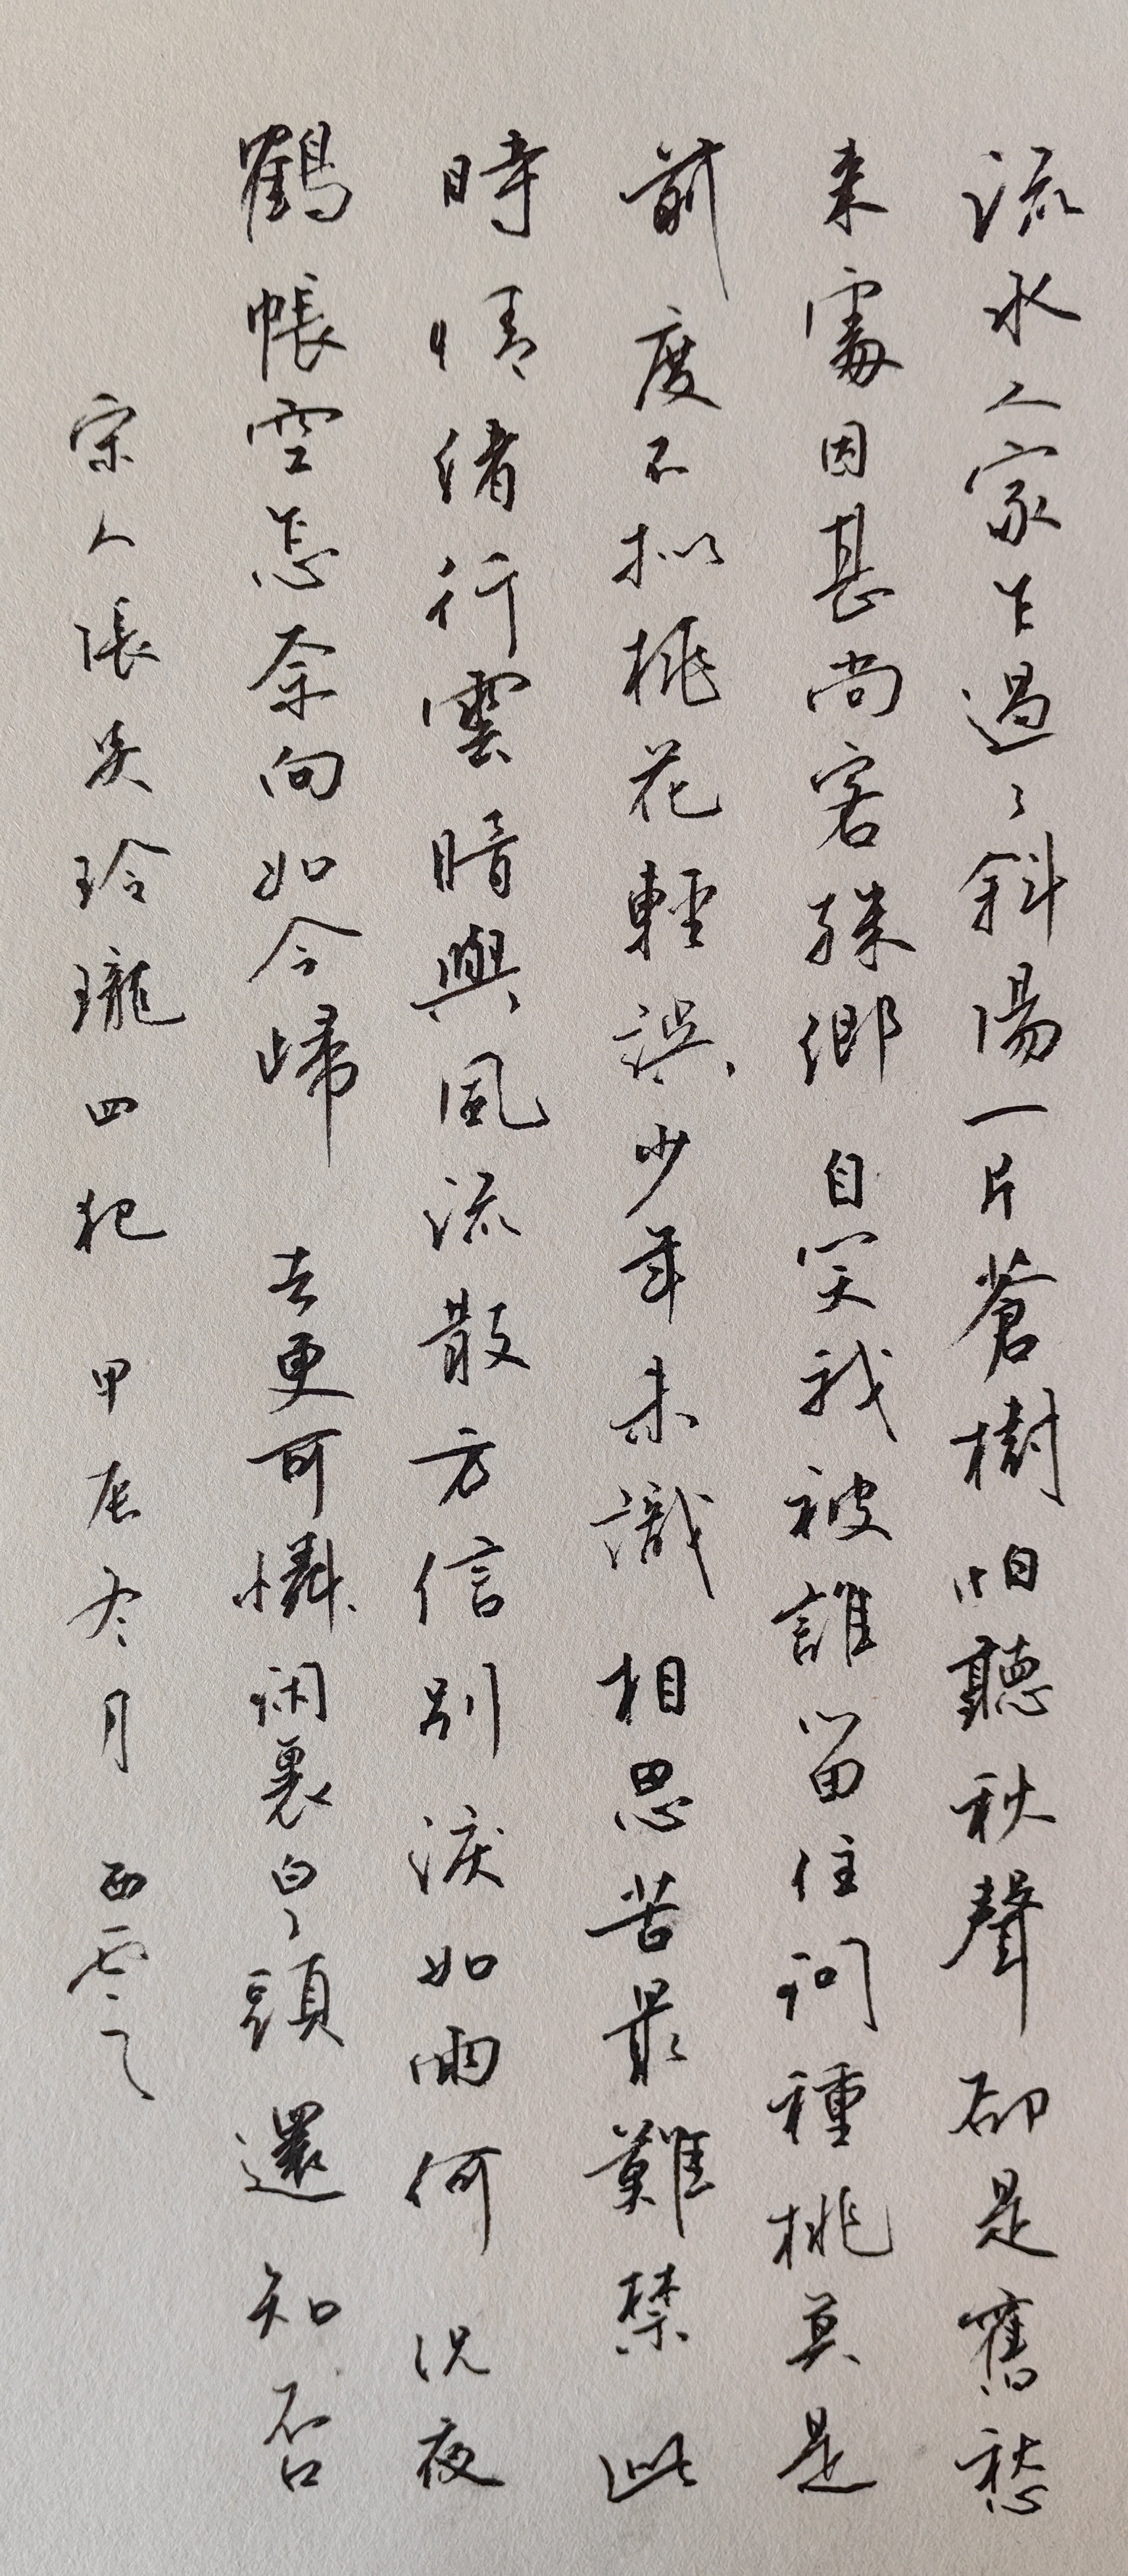 流水人家乍過了斜陽一片蒼樹怕聽秋聲卻是舊愁
来處因甚尚客殊鄉自笑我被誰留住問種桃莫是
前度不拟桃花輕誤少年未識相思苦最難禁此
時情緒行雲暗與風流散方信别淚如雨何况夜
鶴帳空怎奈向如今歸去更可憐闲裏白了頭還知否
宋人張炎玲瓏四犯 甲辰冬月 西